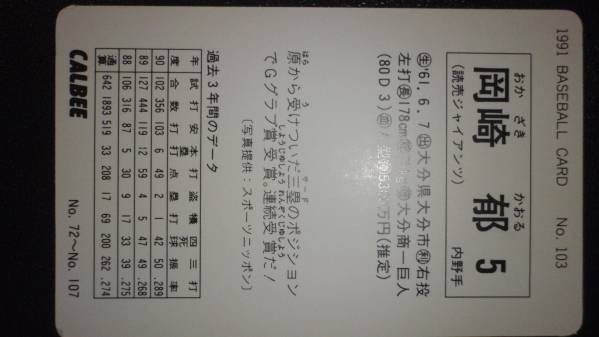 1991 BASEBALL CARD No. 103
おか ざき かおる
岡崎 郁 5
(読売ジャイアンツ) 内野手
生'61. 6. 7 出大分県大分市 利右投
左打 長178cm 大分商ー巨人
(80D3) 万円(推定)
はら う サード
原から受けついだ三塁のポジション
しょうじゅしょう れんぞくじゅしょう
でGグラブ賞受賞。連続受賞だ!
(写真提供:スポーツニッポン)
過去3年間のデータ
年度 試合 打数 安打 本塁打 打点 盗塁 犠打 四死球 三振 打率
90 102 356 103 6 49 2 1 42 50 .289
89 127 444 119 12 59 4 5 47 49 .268
88 106 316 87 5 30 9 17 33 39 .275
通算 642 1893 519 33 208 17 69 200 262 .274
CALBEE No. 72〜No. 107